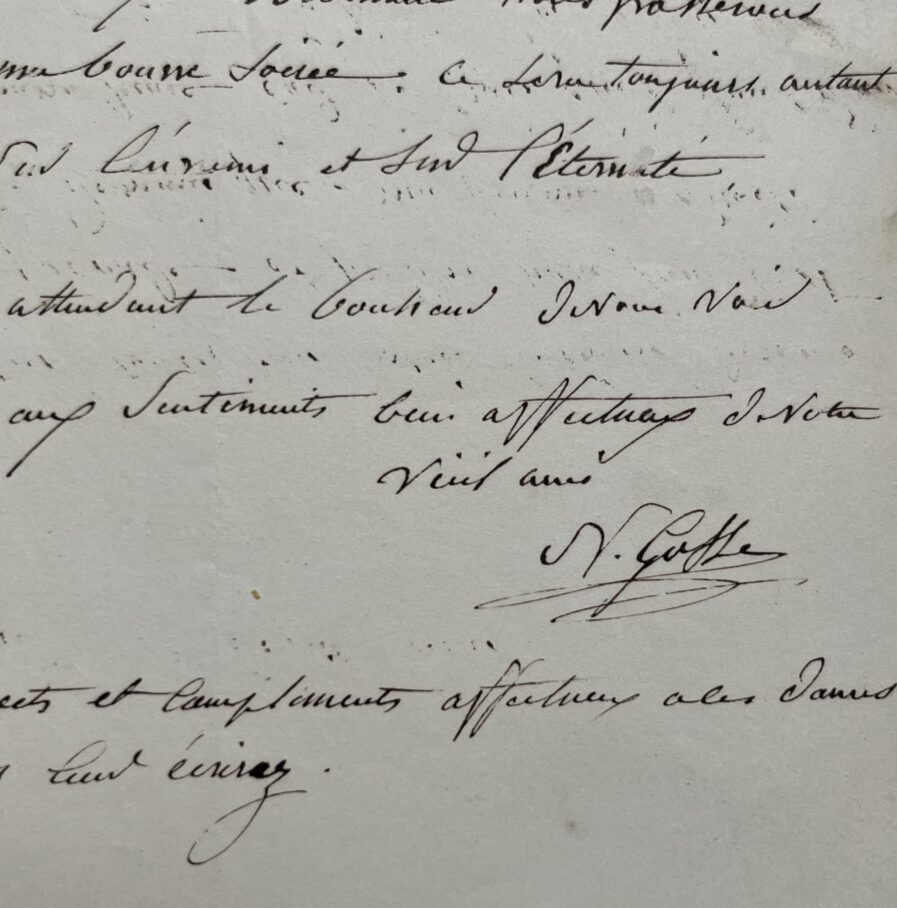 nous passerons
bonne soirée. Ce sera toujours autant
sur l'ennemi et sur l'Éternité
attendant le bonheur de vous voir
aux sentiments bien affectueux de votre
vieil ami
N. Gosse
et compliments affectueux a ces Dames
leur écrirez.